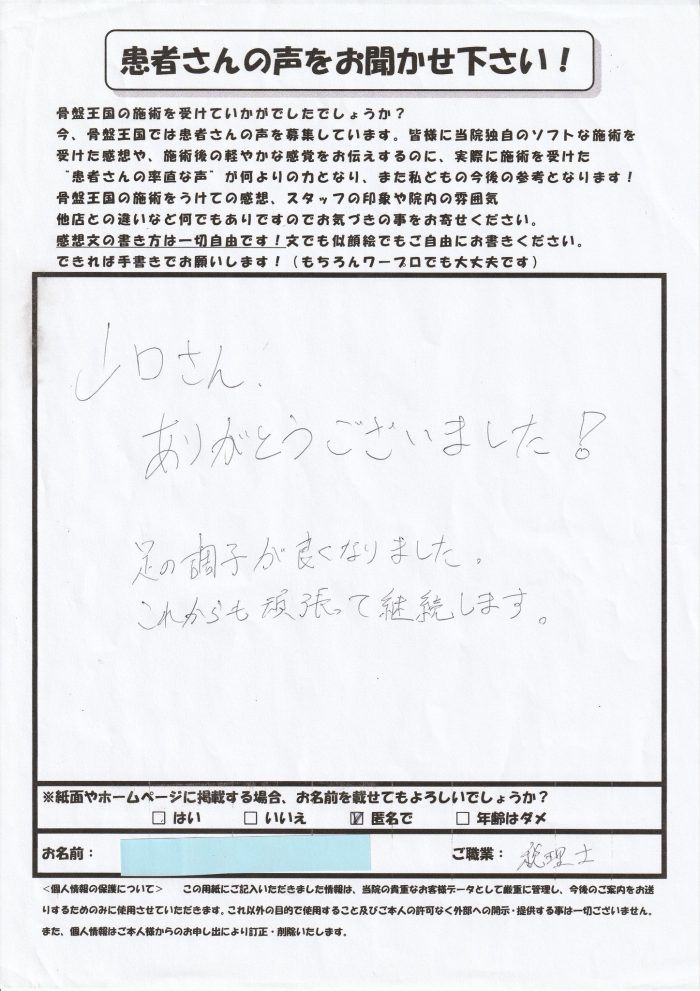 患者さんの声をお聞かせ下さい！
骨盤王国の施術を受けていかがでしたでしょうか？
今、骨盤王国では患者さんの声を募集しています。皆様に当院独自のソフトな施術を
受けた感想や、施術後の軽やかな感覚をお伝えするのに、実際に施術を受けた
“患者さんの率直な声”が何よりの力となり、また私どもの今後の参考となります！
骨盤王国の施術をうけての感想、スタッフの印象や院内の雰囲気
他店との違いなど何でもありですのでお気づきの事をお寄せください。
感想文の書き方は一切自由です！文でも似顔絵でもご自由にお書きください。
できれば手書きでお願いします！（もちろんワープロでも大丈夫です）
山口さん、
ありがとうございました！
足の調子が良くなりました。
これからも頑張って継続します。
※紙面やホームページに掲載する場合、お名前を載せてもよろしいでしょうか？
□ はい □ いいえ ☑ 匿名で □ 年齢はダメ
お名前： ご職業： 税理士
<個人情報の保護について> この用紙にご記入いただきました情報は、当院の貴重なお客様データとして厳重に管理し、今後のご案内をお送
りするためのみに使用させていただきます。これ以外の目的で使用すること及びご本人の許可なく外部への開示・提供する事は一切ございません。
また、個人情報はご本人様からのお申し出により訂正・削除いたします。